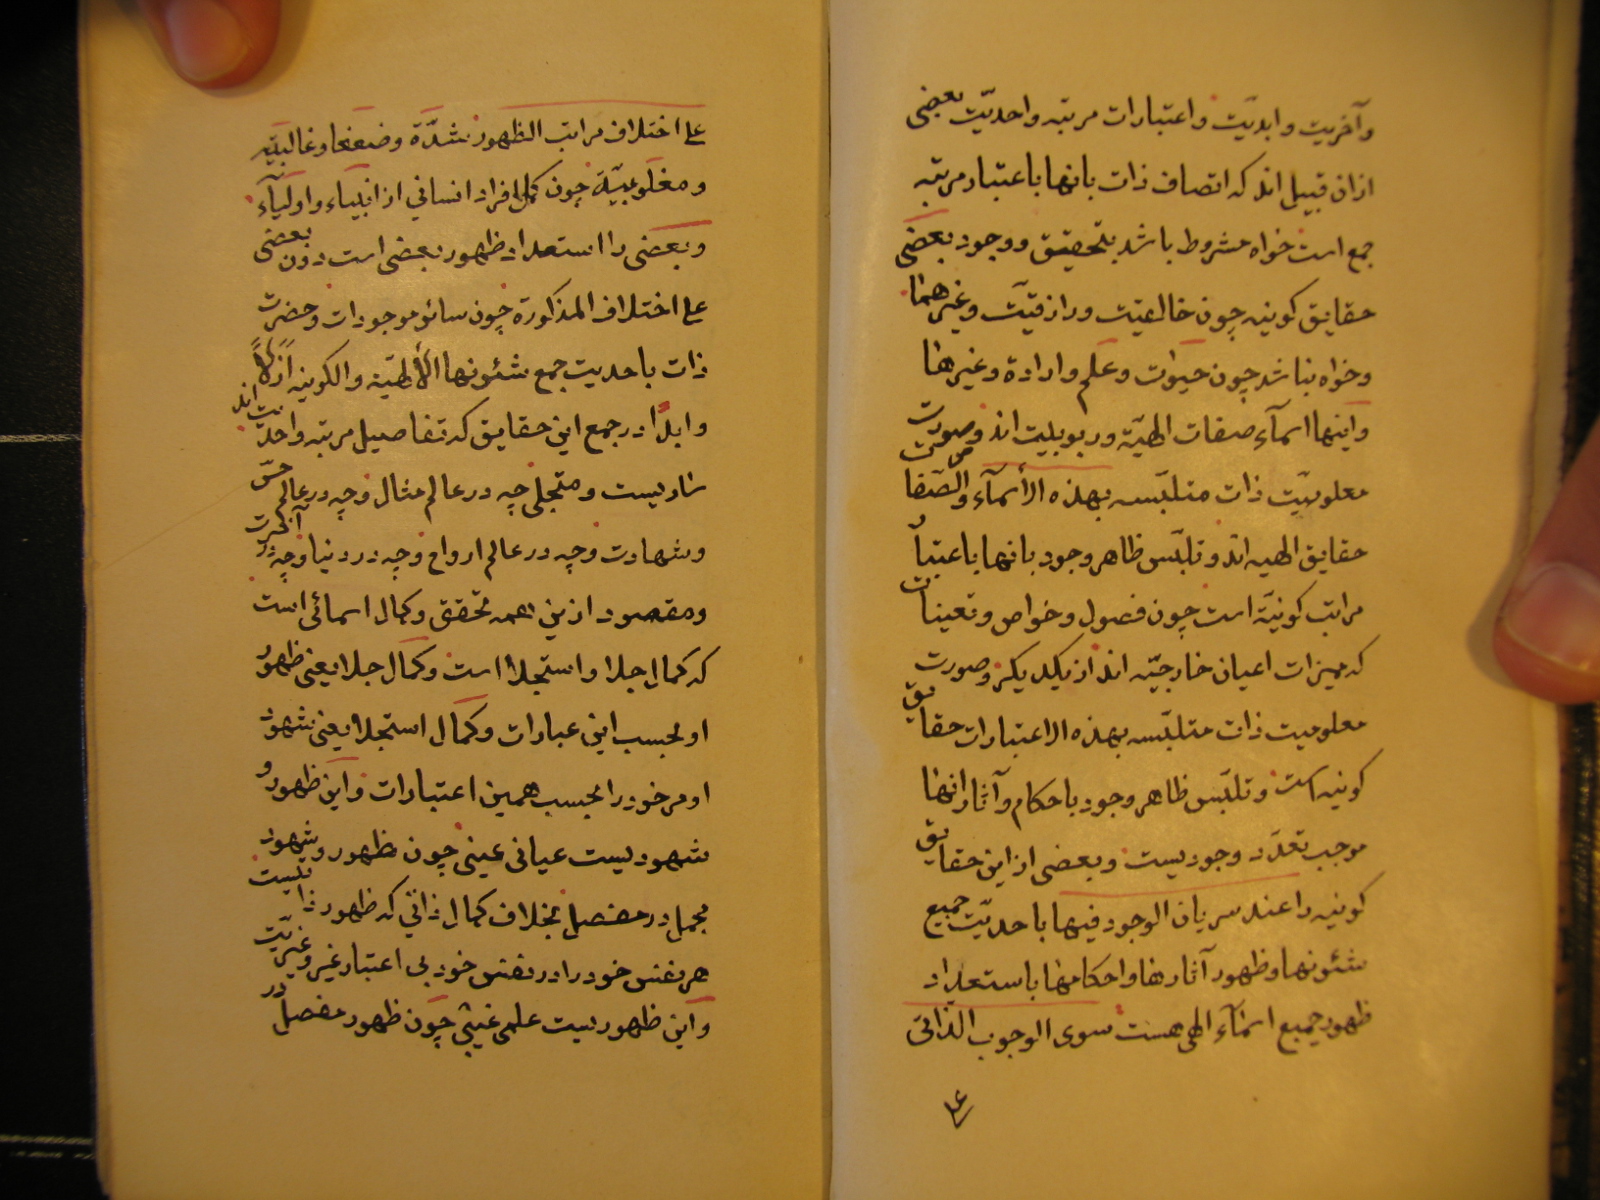 وآخریت وابدیّت واعتبارات مرتبه واحدیّت بعضی
ازان قبیل اند که اتصاف ذات بانها باعتبار مرتبه
جمع است خواه مشروط باشد بتحقیق ووجود بعضی
حقایق کونیه چون خالقیّت ورازقیّت وغیرهما
وخواه نباشد چون حیوٰت وعلم وارادة وغیرها
واینها اسمآء صفات الهیّة وربوبیت اند وصورت
معلومیّت ذات متلبّسه بهذه الأسمآء والصّفات
حقایق الهیه اند وتلبّس ظاهر وجود بانها باعتبار
مراتب کونیّة است چون فصول وخواص وتعینات
که ممیزات اعیان خارجیّه اند از یکدیکر وصورت
معلومیت ذات متلبّسه بهذه الاعتبارات حقایق
کونیه است وتلبّس ظاهر وجود باحکام وآثار انها
موجب تعدّد وجودیست وبعضی از این حقایق
کونیه را عند سریان الوجود فیها باحدیّت جمیع
شئونها وظهور آثارها واحکامها باستعداد
ظهور جمیع اسمآء الهی هست سوی الوجوب الذاتی
علی
علی اختلاف مراتب الظهور شدّة وضعفا وغالبیّه
ومغلوبیّة چون کمل افراد انسانی از انبیاء واولیآء
وبعضی را استعداد ظهور بعضی است دون بعضی
علی اختلاف المذکورة چون سائر موجودات وحضرت
ذات باحدیت جمع شئونها الألهیّة والکونیه ازلاً
وابداً در جمع این حقایق که تفاصیل مرتبه واحدیت اند
ساریست ومتجلی چه در عالم مثال وچه در عالم حسّ
وشهادت وچه در عالم ارواح وچه در دنیا وچه در آخرت
ومقصود ازین همه تحقق وکمال اسمائی است
که کمال جلا واستجلا است وکمال جلا یعنی ظهور
او بحسب این عبارات وکمال استجلا یعنی شهود
او مر خود را بحسب همین اعتبارات واین ظهور و
شهودیست عیانی عینی چون ظهور وشهود
مجمل در مفصل بخلاف کمال ذاتی که ظهور ذاتیست
هر نفس خود را در نفس خود بی اعتبار غیر وغیریّت
واین ظهوریست علمی غیبی چون ظهور مفصل در